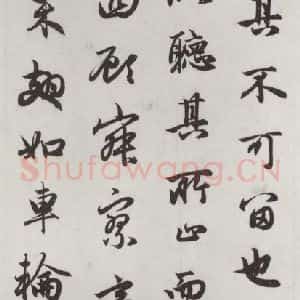 其不可留也
聽其所止而
四顧寂寥
來翅如車輪
Shufawang.CN